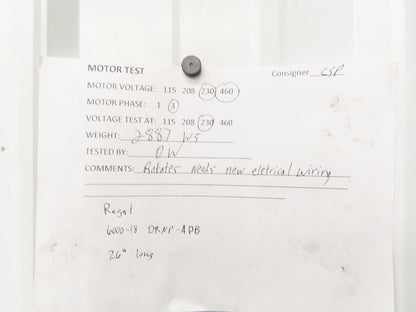 MOTOR TEST
Consigner CSP
MOTOR VOLTAGE: 115 208 230 460
MOTOR PHASE: 1 3
VOLTAGE TEST AT: 115 208 230 460
WEIGHT: 2887 lbs
TESTED BY: DW
COMMENTS: Rotates needs new eletrical wiring
Regal
6000-18 DRNP-APB
26" long